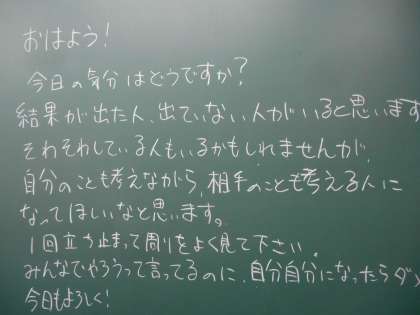 おはよう!
今日の気分はどうですか?
結果が出た人、出ていない人がいると思います
そわそわしている人もいるかもしれませんが、
自分のことも考えながら、相手のことも考える人に
なってほしいなと思います。
1回立ち止まって周りをよく見て下さい。
みんなでやろうって言ってるのに、自分自分になったらダメ
今日もよろしく!